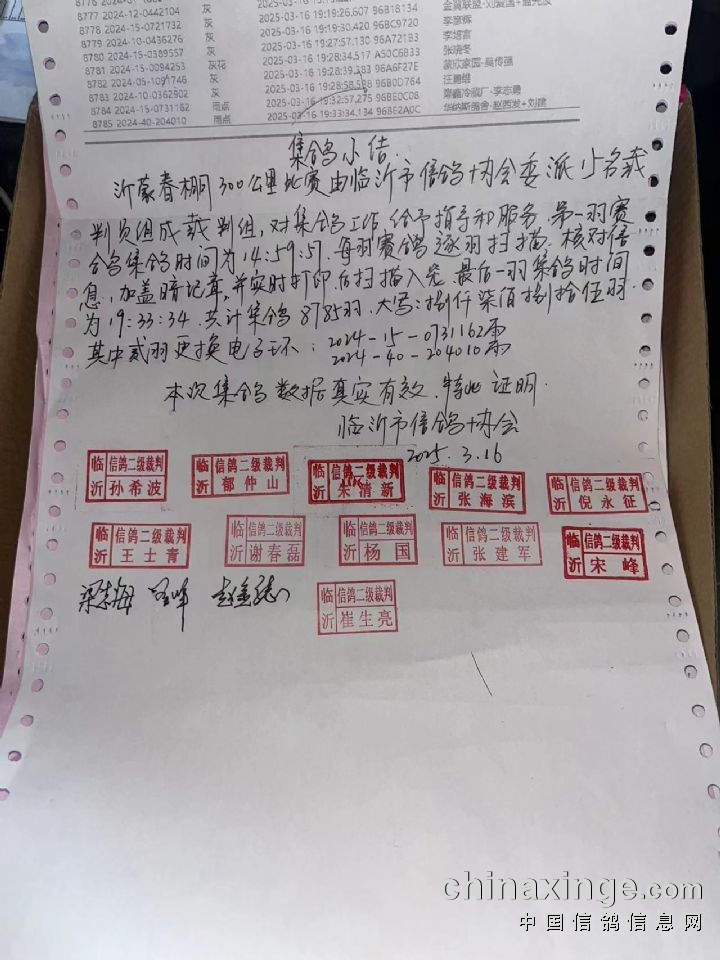 8778 2024-12-0442104 灰 2025-03-16 19:19:26.607 96B18134
8779 2024-15-0721732 灰 2025-03-16 19:19:30.420 96BC9720 李彦辉
8780 2024-10-0436276 灰 2025-03-16 19:27:57.130 96A721B3 李培富
8781 2024-15-0389557 灰 2025-03-16 19:28:34.517 A50C6B33 张晓冬
8782 2024-15-0094253 灰花 2025-03-16 19:28:39.383 96A6F27E 蒙欣家园-吴传强
灰 2025-03-16 19:28:58.588 96B0D764 汪勇雄
8784 2024-15-0731162 雨点 2025-03-16 19:32:57.275 96BE0C08
8785 2024-40-204010 雨点 2025-03-16 19:33:34.134 96BE2A0C 华纳斯鸽舍-赵西发+刘婕
集鸽小结
沂蒙春棚300公里比赛由临沂市信鸽协会委派15名裁
判员组成裁判组,对集鸽工作给予指导和服务.第一羽赛
鸽集鸽时间为14:59:51.每羽赛鸽逐羽扫描.核对信
息,加盖暗记章,并实时打印后扫描入笼.最后一羽集鸽时间
为19:33:34.共计集鸽8785羽.大写:捌仟柒佰捌拾伍羽.
其中贰羽更换电子环:2024-15-0731162雨
2024-40-204010雨
本次集鸽数据真实有效.特此证明.
临沂市信鸽协会
2025.3.16
临沂 信鸽二级裁判 孙希波
临沂 信鸽二级裁判 郁仲山
临沂 信鸽二级裁判 朱清新
临沂 信鸽二级裁判 张海滨
临沂 信鸽二级裁判 倪永征
临沂 信鸽二级裁判 王士青
临沂 信鸽二级裁判 谢春磊
临沂 信鸽二级裁判 杨国
临沂 信鸽二级裁判 张建军
临沂 信鸽二级裁判 宋峰
梁志海
临沂 信鸽二级裁判 崔生亮
chinaxinge.com
中国信鸽信息网